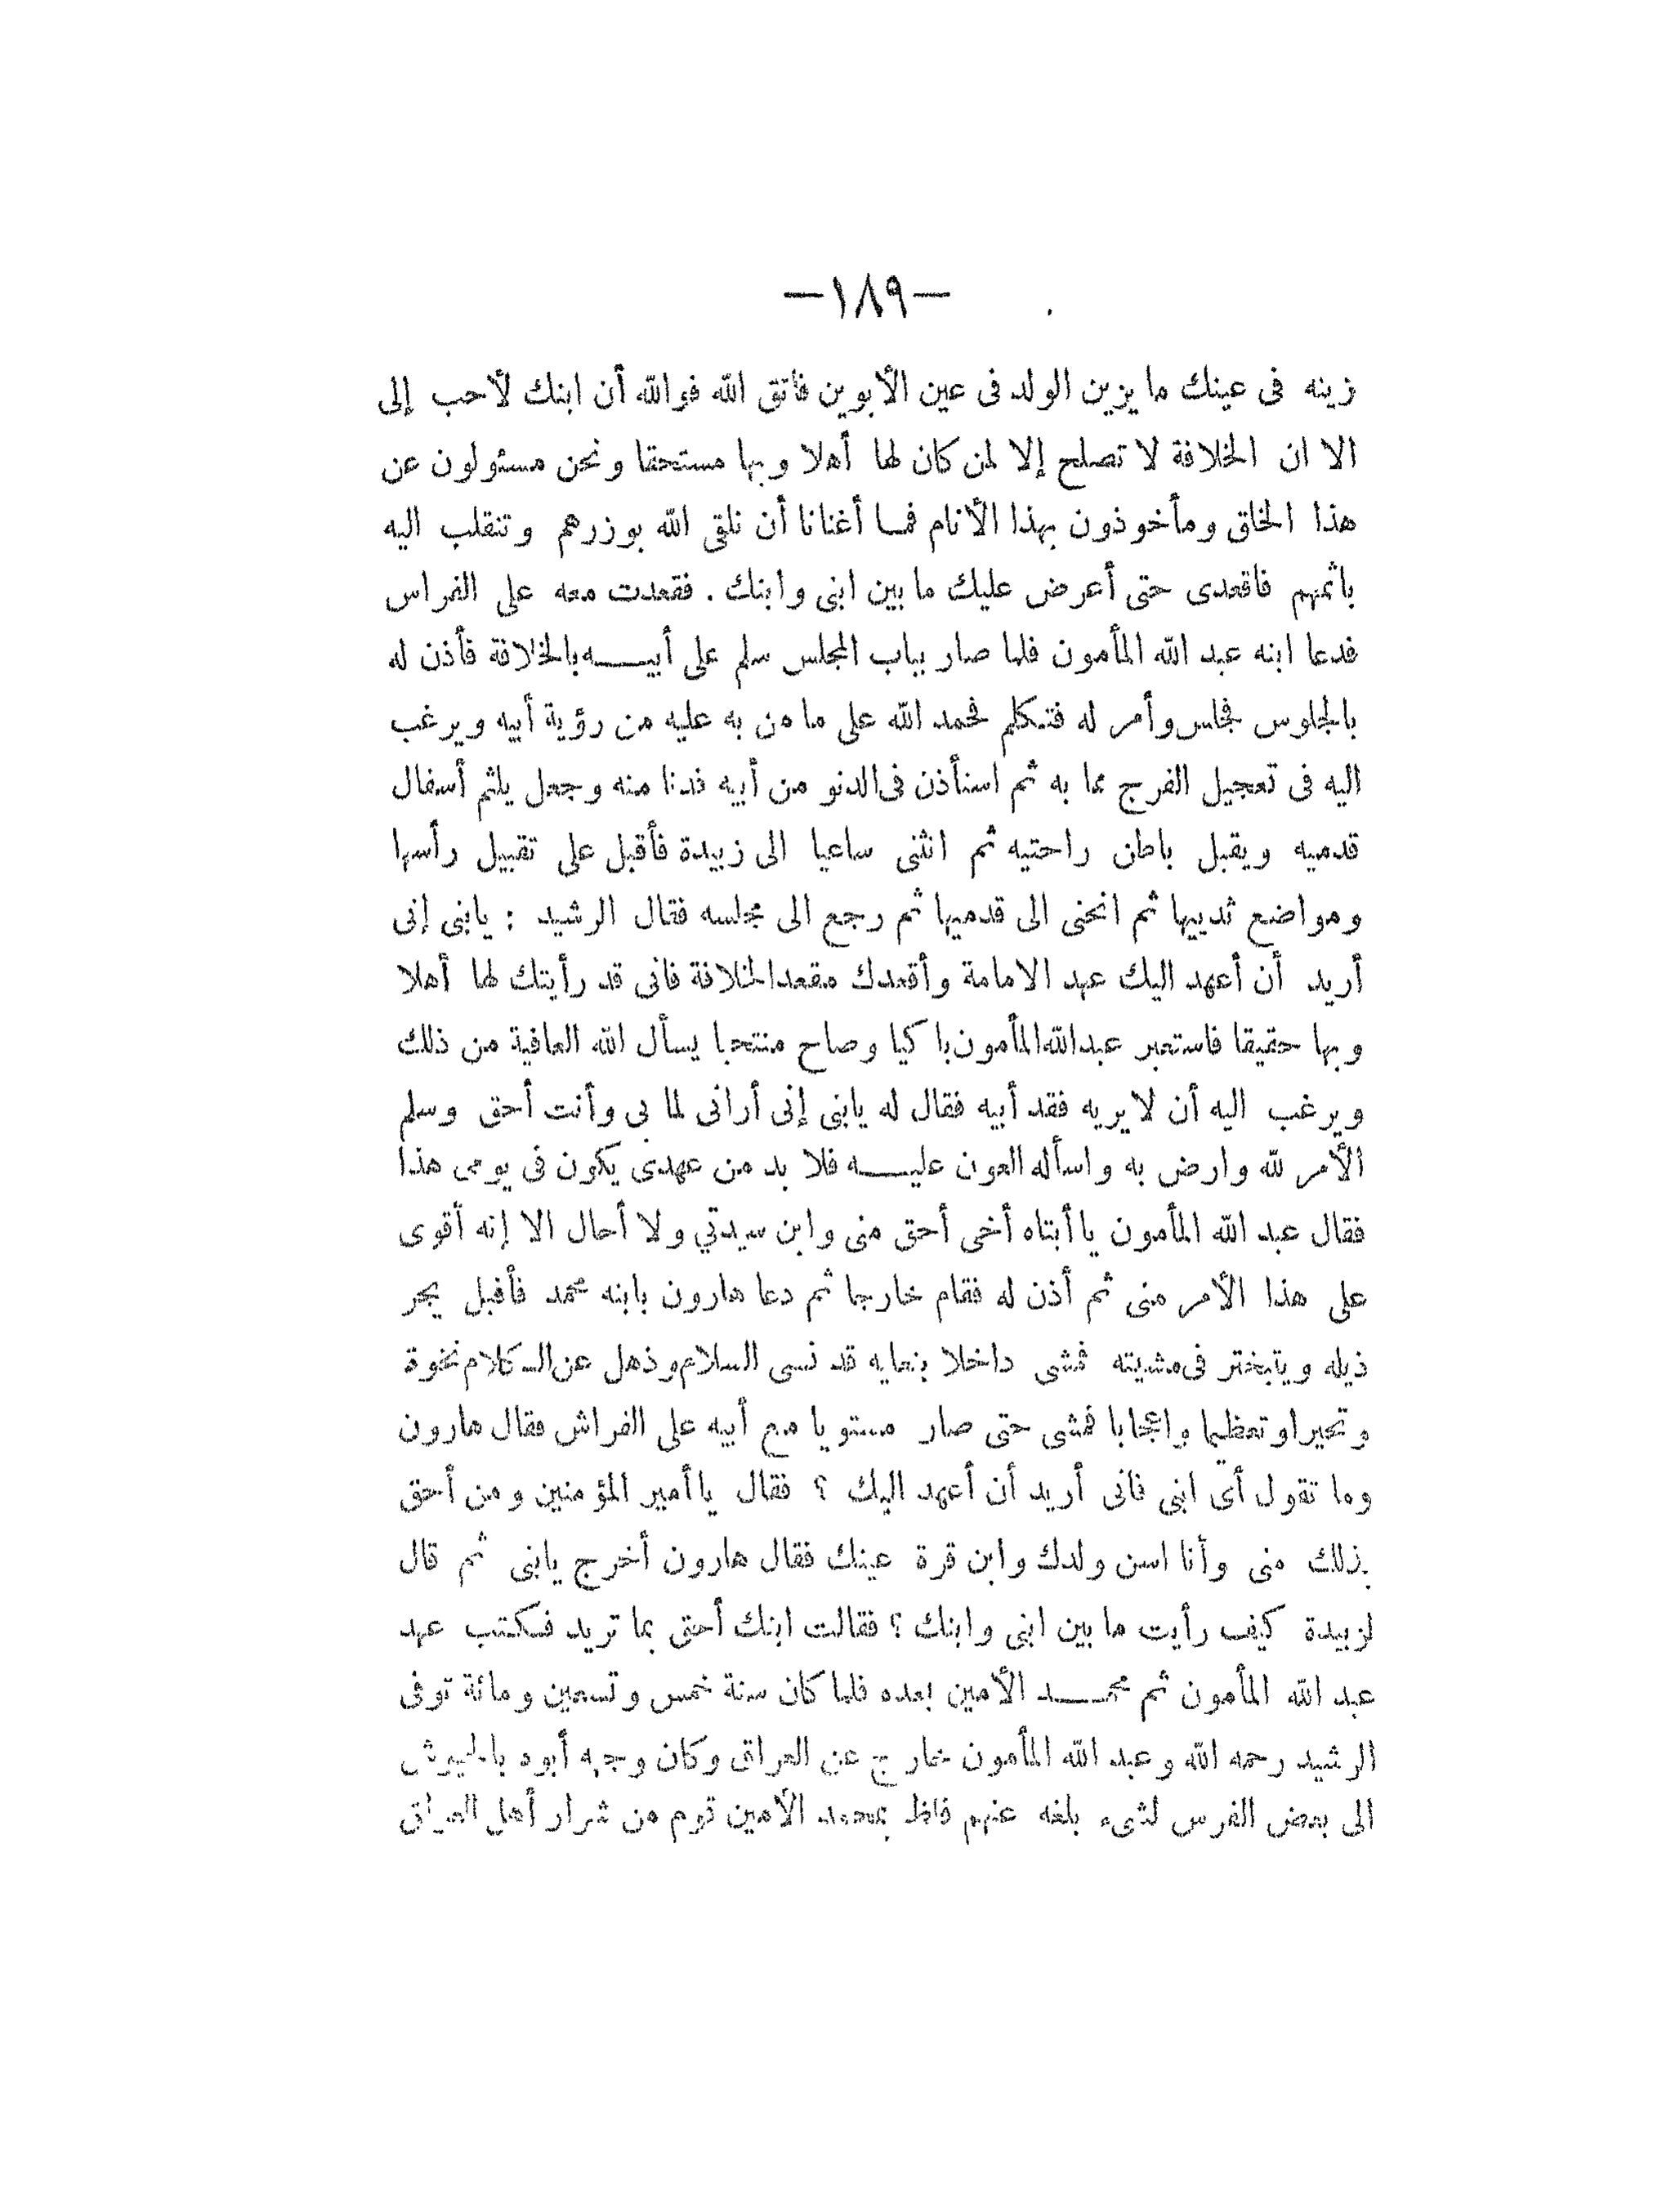 —١٨٩—
زينه فى عينك ما يزين الولد فى عين الأبوين فاتق الله فوالله أن ابنك لأحب إلى
الا ان الخلافة لا تصلح إلا لمن كان لها أهلا وبها مستحقا ونحن مسئولون عن
هذا الخلق ومأخوذون بهذا الأنام فما أغنانا أن نلقى الله بوزرهم وتنقلب اليه
باثمهم فاقعدى حتى أعرض عليك ما بين ابنى وابنك . فقعدت معه على الفراس
فدعا ابنه عبد الله المأمون فلما صار بباب المجلس سلم على أبيــه بالخلافة فأذن له
بالجلوس فجلس وأمر له فتكلم فحمد الله على ما من به عليه من رؤية أبيه ويرغب
اليه فى تعجيل الفرج مما به ثم استأذن فى الدنو من أبيه فدنا منه وجعل يلثم أسفال
قدميه ويقبل باطن راحتيه ثم انثنى ساعيا الى زبيدة فأقبل على تقبيل رأسها
ومواضع ثدييها ثم انحنى الى قدميها ثم رجع الى مجلسه فقال الرشيد : يابنى إنى
أريد أن أعهد اليك عهد الامامة وأقعدك مقعد الخلافة فانى قد رأيتك لها أهلا
وبها حقيقا فاستعبر عبد الله المأمون باكيا وصاح منتحبا يسأل الله العافية من ذلك
ويرغب اليه أن لا يريه فقد أبيه فقال له يابنى إنى أرانى لما بى وأنت أحق وسلم
الأمر لله وارض به واسأله العون عليــه فلا بد من عهدى يكون فى يومى هذا
فقال عبد الله المأمون يا أبتاه أخى أحق منى وابن سيدتي ولا أحال الا إنه أقوى
على هذا الأمر منى ثم أذن له فقام خارجا ثم دعا هارون بابنه محمد فأقبل يجر
ذيله ويتبختر فى مشيته فمشى داخلا بنعليه قد نسى السلام وذهل عن الكلام نخوة
وتحيرا وتعظيما واعجابا فمشى حتى صار مستويا مع أبيه على الفراش فقال هارون
وما تقول أى ابنى فانى أريد أن أعهد اليك ؟ فقال يا أمير المؤمنين ومن أحق
بذلك منى وأنا اسن ولدك وابن قرة عينك فقال هارون أخرج يابنى ثم قال
لزبيدة كيف رأيت ما بين ابنى وابنك ؟ فقالت ابنك أحق بما تريد فكتب عهد
عبد الله المأمون ثم محمــد الأمين بعده فلما كان سنة خمس وتسعين ومائة توفى
الرشيد رحمه الله وعبد الله المأمون خارج عن العراق وكان وجهه أبوه بالجيوش
الى بعض الفرس لشىء بلغه عنهم بمحمد الأمين قوم من شرار أهل العراق